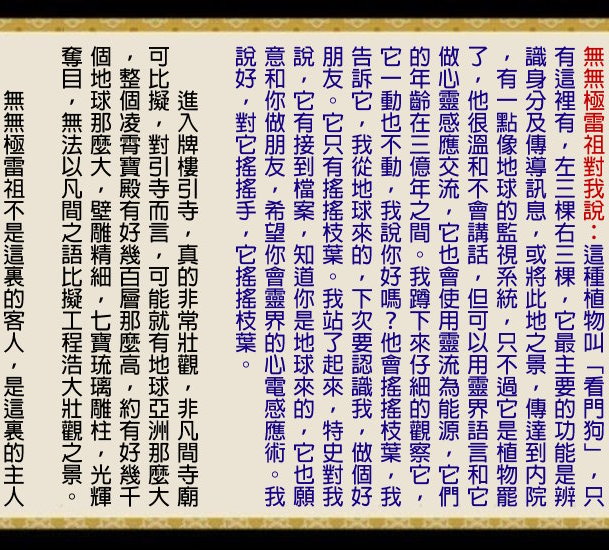 無無極雷祖對我說：這種植物叫「看門狗」，只
有這裡有，左三棵右三棵，它最主要的功能是辨
識身分及傳導訊息，或將此地之景，傳達到內院
，有一點像地球的監視系統，只不過它是植物罷
了，他很溫和不會講話，但可以用靈界語言和它
做心靈感應交流，它也會使用靈流為能源，它們
的年齡在三億年之間。我蹲下來仔細的觀察它，
它一動也不動，我說你好嗎？他會搖搖枝葉，我
告訴它，我從地球來的，下次要認識我，做個好
朋友。它只有搖搖枝葉。我站了起來，特史對我
說，它有接到檔案，知道你是地球來的，它也願
意和你做朋友，希望你會靈界的心電感應術。我
說好，對它搖搖手，它搖搖枝葉。
進入牌樓引寺，真的非常壯觀，非凡間寺廟
可比擬，對引寺而言，可能就有地球亞洲那麼大
，整個凌霄寶殿有好幾百層那麼高，約有好幾千
個地球那麼大，壁雕精細，七寶琉璃雕柱，光輝
奪目，無法以凡間之語比擬工程浩大壯觀之景。
無無極雷祖不是這裏的客人，是這裏的主人